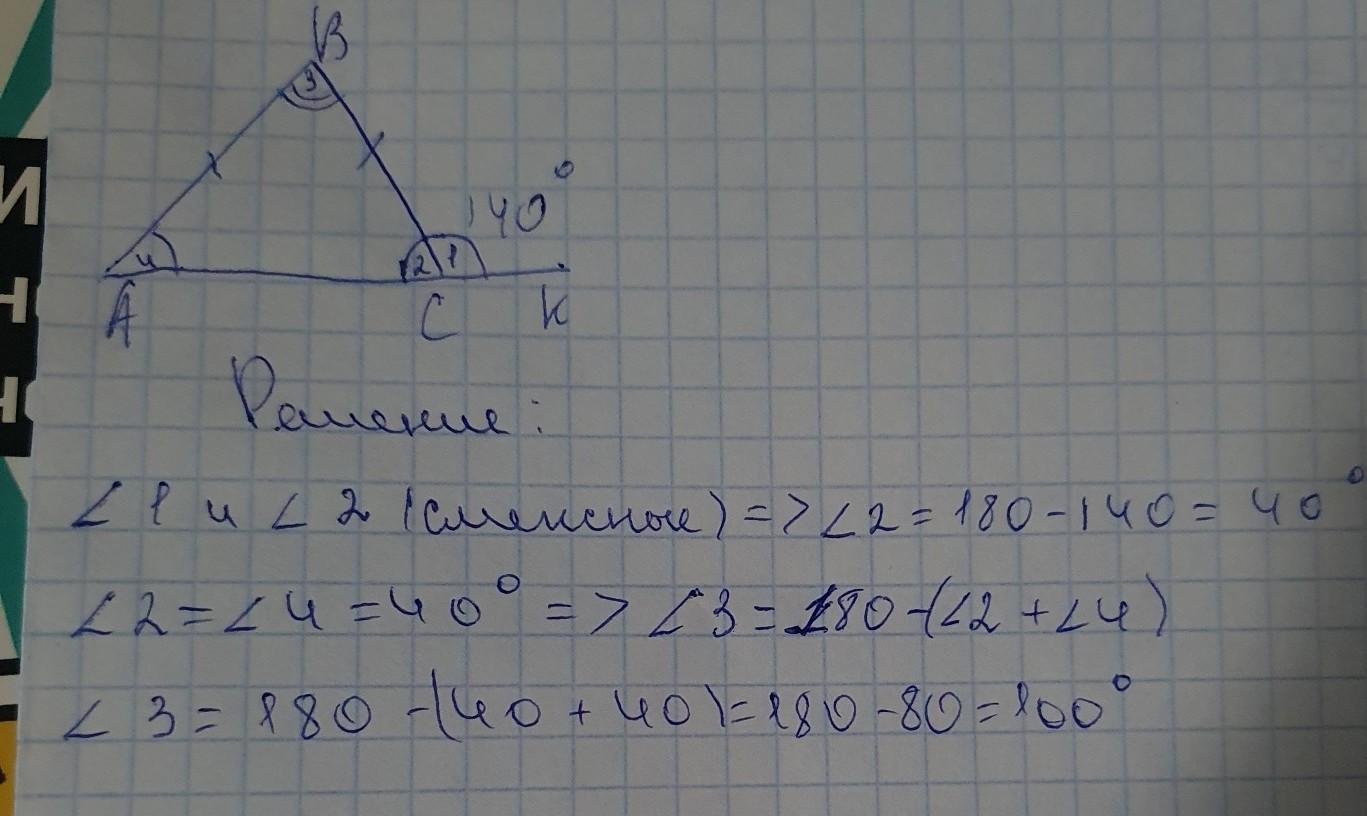 B
3
140°
4 2 1
A C K
Решение:
∠1 и ∠2 (смежные) => ∠2 = 180 - 140 = 40°
∠2 = ∠4 = 40° => ∠3 = 180 - (∠2 + ∠4)
∠3 = 180 - (40 + 40) = 180 - 80 = 100°
И
Н
Н